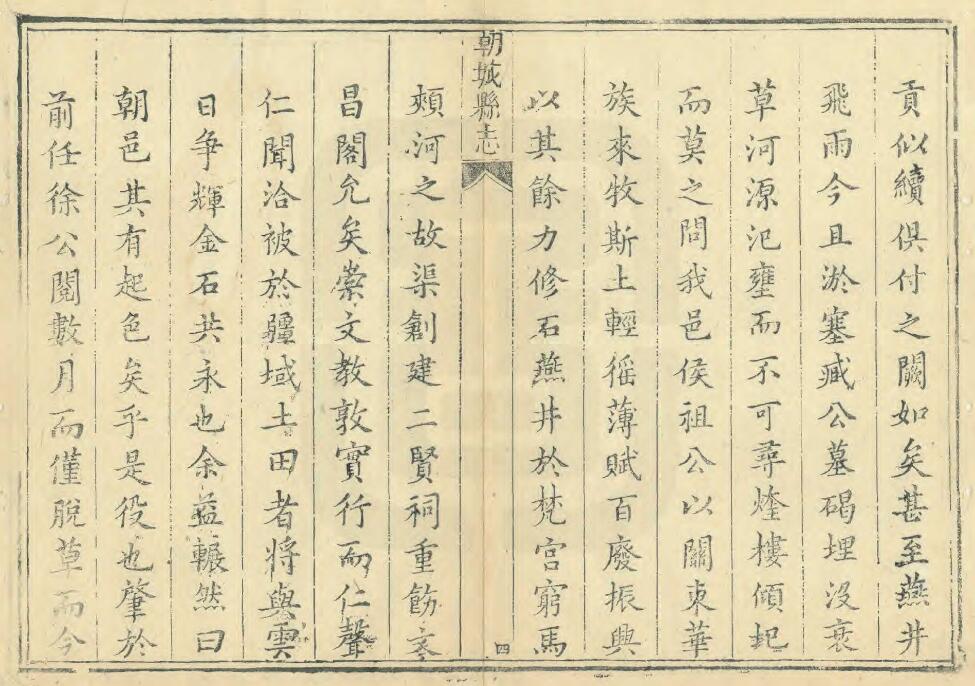 貢似續俱付之闕如矣甚至燕井
飛雨今且淤塞臧公墓碣埋沒衰
草河源汜壅而不可尋煃摟傾圯
而莫之問我邑侯祖公以關東華
族來牧斯土輕徭薄賦百廢振興
以其餘力修石燕井於梵宮窮馬
朝城縣志
四
頰河之故渠創建二賢祠重飭
昌閣允矣崇文教敦實行而仁聲
仁聞洽被於疆域土田者將與雲
日爭輝金石共永也余益輾然曰
朝邑其有起色矣乎是役也肇於
前任徐公閱數月而僅脫草而今